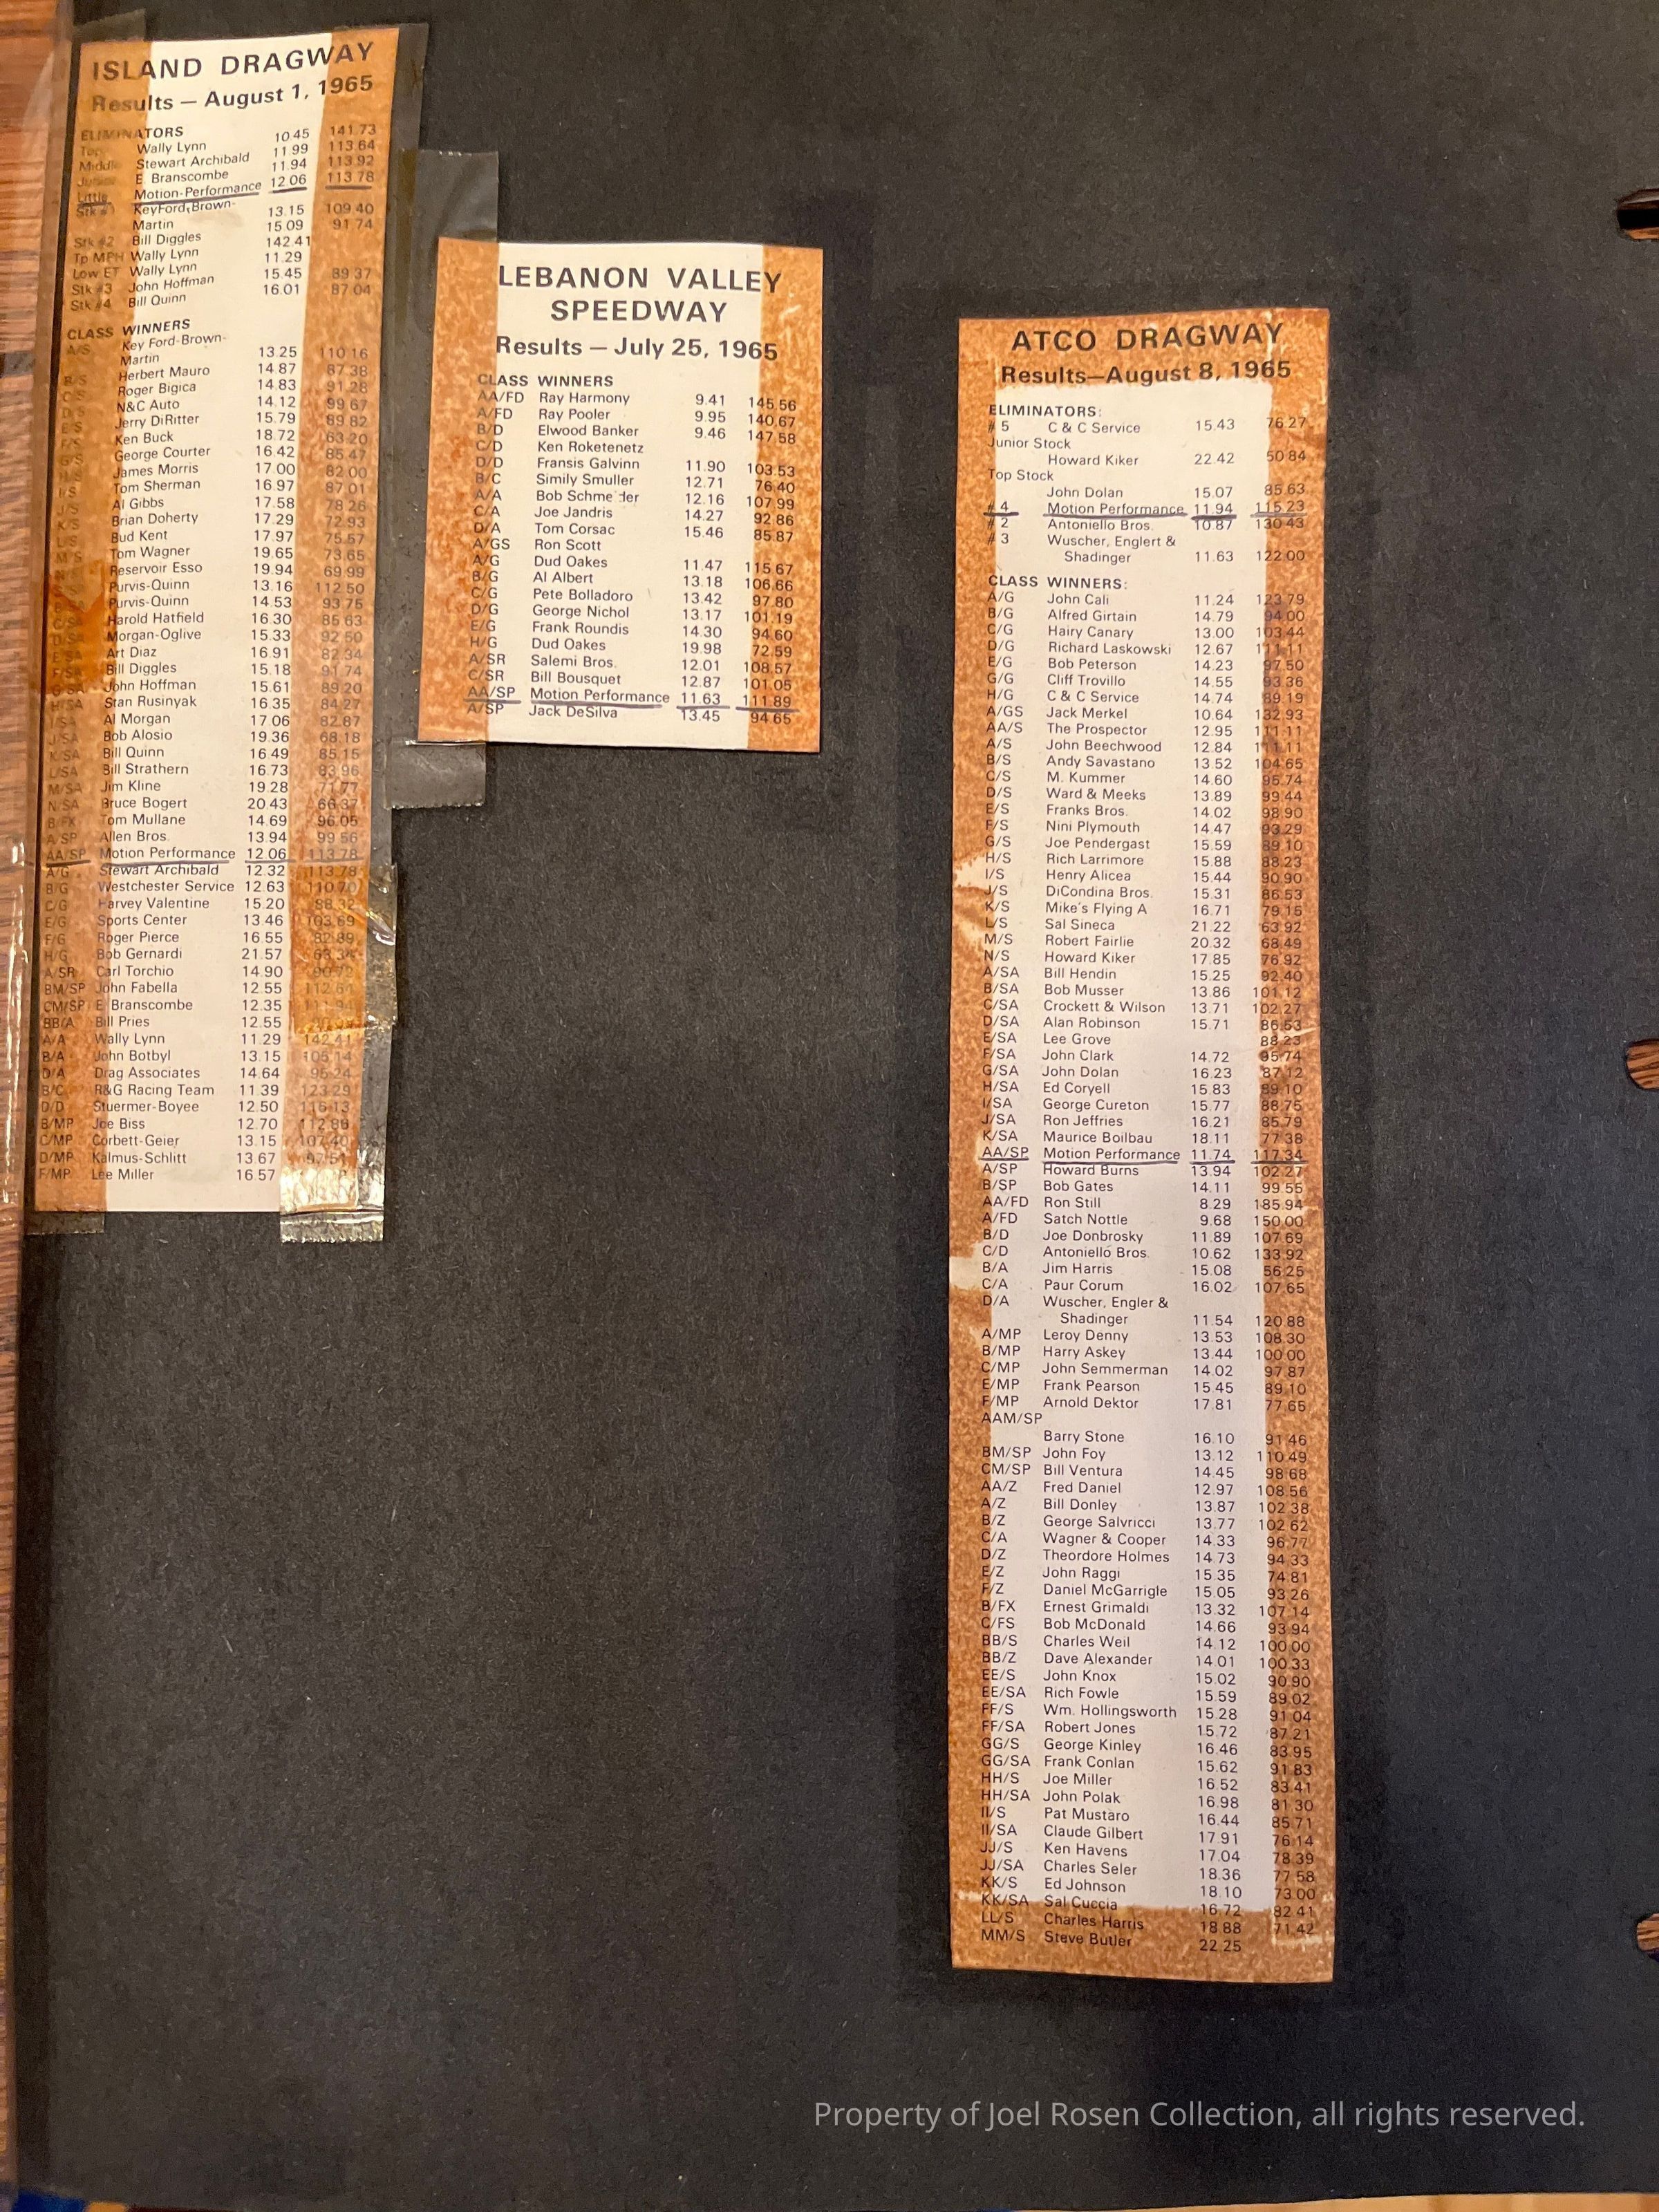 ISLAND DRAGWAY
Results — August 1, 1965
ELIMINATORS
Top Wally Lynn 10.45 141.73
Middle Stewart Archibald 11.99 113.64
Junior E. Branscombe 11.94 113.92
Little Motion-Performance 12.06 113.78
Stk #1 KeyFord-Brown-
Martin 13.15 109.40
Stk #2 Bill Diggles 15.09 91.74
Tp MPH Wally Lynn 142.41
Low ET Wally Lynn 11.29
Stk #3 John Hoffman 15.45 89.37
Stk #4 Bill Quinn 16.01 87.04
CLASS WINNERS
A/S Key Ford-Brown-
Martin 13.25 110.16
B/S Herbert Mauro 14.87 87.38
C/S Roger Bigica 14.83 91.28
D/S N&C Auto 14.12 99.67
E/S Jerry DiRitter 15.79 89.82
F/S Ken Buck 18.72 63.20
G/S George Courter 16.42 85.47
H/S James Morris 17.00 82.00
I/S Tom Sherman 16.97 87.01
J/S Al Gibbs 17.58 78.26
K/S Brian Doherty 17.29 72.93
L/S Bud Kent 17.97 75.57
M/S Tom Wagner 19.65 73.65
N/S Reservoir Esso 19.94 69.99
Purvis-Quinn 13.16 112.50
Purvis-Quinn 14.53 93.75
C/SA Harold Hatfield 16.30 85.63
D/SA Morgan-Oglive 15.33 92.50
E/SA Art Diaz 16.91 82.34
F/SA Bill Diggles 15.18 91.74
G/SA John Hoffman 15.61 89.20
H/SA Stan Rusinyak 16.35 84.27
I/SA Al Morgan 17.06 82.87
J/SA Bob Alosio 19.36 68.18
K/SA Bill Quinn 16.49 85.15
L/SA Bill Strathern 16.73 83.96
M/SA Jim Kline 19.28 71.77
N/SA Bruce Bogert 20.43 66.37
B/FX Tom Mullane 14.69 96.05
A/SP Allen Bros. 13.94 99.56
AA/SP Motion Performance 12.06 113.78
A/G Stewart Archibald 12.32 113.78
B/G Westchester Service 12.63 110.70
C/G Harvey Valentine 15.20 88.32
E/G Sports Center 13.46 103.69
F/G Roger Pierce 16.55 82.89
H/G Bob Gernardi 21.57 63.34
A/SR Carl Torchio 14.90 90.72
BM/SP John Fabella 12.55 112.61
CM/SP E. Branscombe 12.35 111.94
BB/A Bill Pries 12.55
A/A Wally Lynn 11.29 142.41
B/A John Botbyl 13.15 105.14
D/A Drag Associates 14.64 95.24
B/C R&G Racing Team 11.39 123.29
D/D Stuermer-Boyee 12.50 115.13
B/MP Joe Biss 12.70 112.88
C/MP Corbett-Geier 13.15 107.40
D/MP Kalmus-Schlitt 13.67 97.51
F/MP Lee Miller 16.57
LEBANON VALLEY
SPEEDWAY
Results — July 25, 1965
CLASS WINNERS
AA/FD Ray Harmony 9.41 145.56
A/FD Ray Pooler 9.95 140.67
B/D Elwood Banker 9.46 147.58
C/D Ken Roketenetz
D/D Fransis Galvinn 11.90 103.53
B/C Simily Smuller 12.71 76.40
A/A Bob Schme der 12.16 107.99
C/A Joe Jandris 14.27 92.86
D/A Tom Corsac 15.46 85.87
A/GS Ron Scott
A/G Dud Oakes 11.47 115.67
B/G Al Albert 13.18 106.66
C/G Pete Bolladoro 13.42 97.80
D/G George Nichol 13.17 101.19
E/G Frank Roundis 14.30 94.60
H/G Dud Oakes 19.98 72.59
A/SR Salemi Bros. 12.01 108.57
C/SR Bill Bousquet 12.87 101.05
AA/SP Motion Performance 11.63 111.89
A/SP Jack DeSilva 13.45 94.65
ATCO DRAGWAY
Results—August 8, 1965
ELIMINATORS:
# 5 C & C Service 15.43 76.27
Junior Stock
Howard Kiker 22.42 50.84
Top Stock
John Dolan 15.07 85.63
# 4 Motion Performance 11.94 115.23
# 2 Antoniello Bros. 10.87 130.43
# 3 Wuscher, Englert &
Shadinger 11.63 122.00
CLASS WINNERS:
A/G John Cali 11.24 123.79
B/G Alfred Girtain 14.79 94.00
C/G Hairy Canary 13.00 103.44
D/G Richard Laskowski 12.67 111.11
E/G Bob Peterson 14.23 97.50
G/G Cliff Trovillo 14.55 93.36
H/G C & C Service 14.74 89.19
A/GS Jack Merkel 10.64 132.93
AA/S The Prospector 12.95 111.11
A/S John Beechwood 12.84 111.11
B/S Andy Savastano 13.52 104.65
C/S M. Kummer 14.60 95.74
D/S Ward & Meeks 13.89 99.44
E/S Franks Bros. 14.02 98.90
F/S Nini Plymouth 14.47 93.29
G/S Joe Pendergast 15.59 89.10
H/S Rich Larrimore 15.88 88.23
I/S Henry Alicea 15.44 90.90
J/S DiCondina Bros. 15.31 86.53
K/S Mike's Flying A 16.71 79.15
L/S Sal Sineca 21.22 63.92
M/S Robert Fairlie 20.32 68.49
N/S Howard Kiker 17.85 76.92
A/SA Bill Hendin 15.25 92.40
B/SA Bob Musser 13.86 101.12
C/SA Crockett & Wilson 13.71 102.27
D/SA Alan Robinson 15.71 86.53
E/SA Lee Grove 88.23
F/SA John Clark 14.72 95.74
G/SA John Dolan 16.23 87.12
H/SA Ed Coryell 15.83 89.10
I/SA George Cureton 15.77 88.75
J/SA Ron Jeffries 16.21 85.79
K/SA Maurice Boilbau 18.11 77.38
AA/SP Motion Performance 11.74 117.34
A/SP Howard Burns 13.94 102.27
B/SP Bob Gates 14.11 99.55
AA/FD Ron Still 8.29 185.94
A/FD Satch Nottle 9.68 150.00
B/D Joe Donbrosky 11.89 107.69
C/D Antoniello Bros. 10.62 133.92
B/A Jim Harris 15.08 56.25
C/A Paur Corum 16.02 107.65
D/A Wuscher, Engler &
Shadinger 11.54 120.88
A/MP Leroy Denny 13.53 108.30
B/MP Harry Askey 13.44 100.00
C/MP John Semmerman 14.02 97.87
E/MP Frank Pearson 15.45 89.10
F/MP Arnold Dektor 17.81 77.65
AAM/SP
Barry Stone 16.10 91.46
BM/SP John Foy 13.12 110.49
CM/SP Bill Ventura 14.45 98.68
AA/Z Fred Daniel 12.97 108.56
A/Z Bill Donley 13.87 102.38
B/Z George Salvricci 13.77 102.62
C/A Wagner & Cooper 14.33 96.77
D/Z Theordore Holmes 14.73 94.33
E/Z John Raggi 15.35 74.81
F/Z Daniel McGarrigle 15.05 93.26
B/FX Ernest Grimaldi 13.32 107.14
C/FS Bob McDonald 14.66 93.94
BB/S Charles Weil 14.12 100.00
BB/Z Dave Alexander 14.01 100.33
EE/S John Knox 15.02 90.90
EE/SA Rich Fowle 15.59 89.02
FF/S Wm. Hollingsworth 15.28 91.04
FF/SA Robert Jones 15.72 87.21
GG/S George Kinley 16.46 83.95
GG/SA Frank Conlan 15.62 91.83
HH/S Joe Miller 16.52 83.41
HH/SA John Polak 16.98 81.30
II/S Pat Mustaro 16.44 85.71
II/SA Claude Gilbert 17.91 76.14
JJ/S Ken Havens 17.04 78.39
JJ/SA Charles Seler 18.36 77.58
KK/S Ed Johnson 18.10 73.00
KK/SA Sal Cuccia 16.72 82.41
LL/S Charles Harris 18.88 71.42
MM/S Steve Butler 22.25
Property of Joel Rosen Collection, all rights reserved.